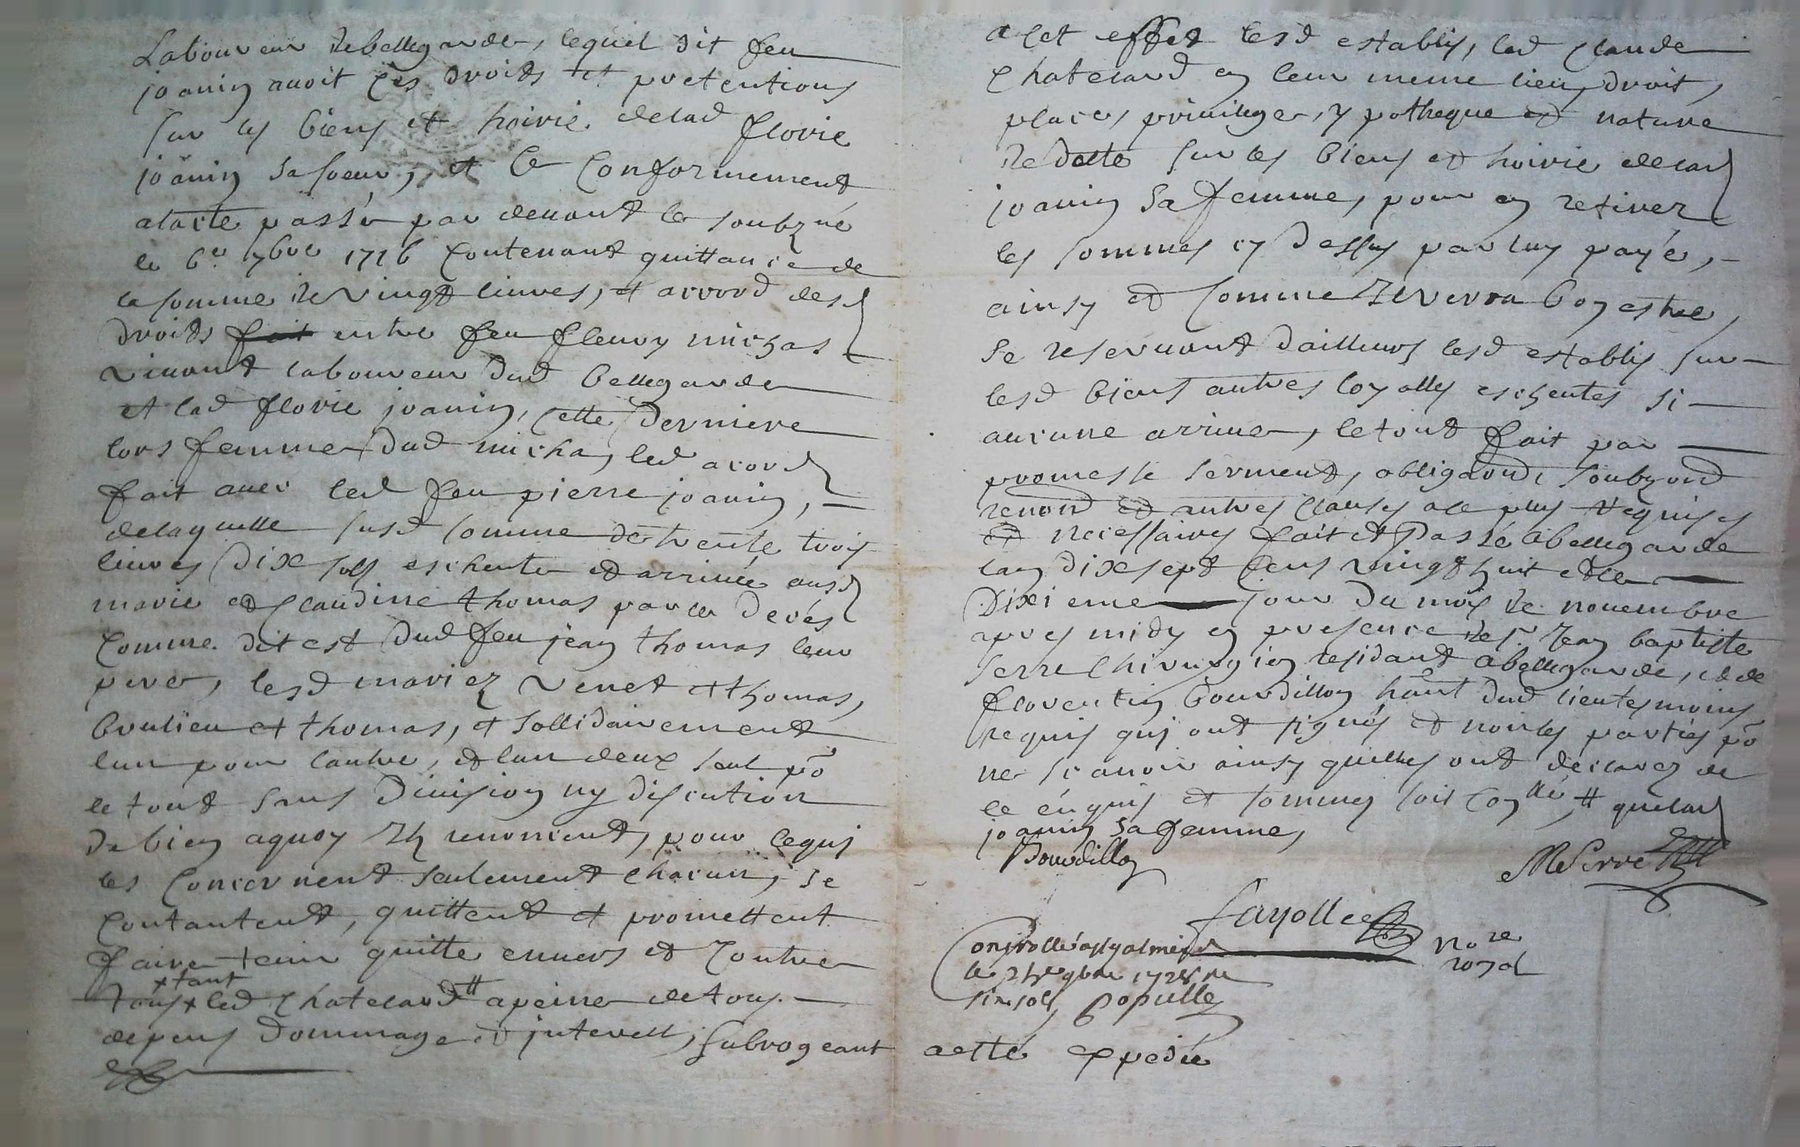 Laboureur de bellegarde, lequel dit feu
joanin avoit ces droits et pretentions
sur les biens et hoirie de lad florie
joanin sa soeur, et ce conformement
a lacte passé par devant le soubzné
le 6e 7bre 1716 contenant quittance de
la somme de vingt livres, et accord des
droits fait entre feu fleury michas
vivant laboureur dud bellegarde
et lad florie joanin, cette derniere
lors femme dud micha, led acord
fait avec led feu pierre joanin,
de laquelle susd somme de trente trois
livres dix sols escheute et arrivée ausd
marie et Claudine thomas par le decés
comme dit est dud feu jean thomas leur
pere, lesd mariez venet et thomas,
brulieu et thomas, et sollidairement
lun pour lautre, et lun deux seul po
le tout sans division ny discution
de bien a quoy Ils renoncent, pour ce qui
les concernent seulement chacun, se
contantent, quittent et promettent
faire tenir quitte envers et contre
tant
tous led Chatelard # a peine de tous
depens dommage et interest, subrogeant
a cet effet lesd establis, led claude
Chatelard en leur meme lieu, droit,
places, privilege, ypotheque et nature
de dette sur les biens et hoirie de lad
joanin sa femme, pour en retirer
les sommes cy dessus par luy payé,
ainsy et comme Il verra bon estre,
se reservant dailleurs lesd establis sur
lesd biens autres loyalles escheutes si
aucune arrive, le tout fait par
promesse serment, obligaons, soubzons
renons et autres clauses a ce plus requises
et necessaires fait et passé a bellegarde
lan dix sept cens vingt huit et le
Dixieme jour du mois de novembre
apres midy en presence de sr Jean baptiste
serre Chirurgien residant a bellegarde, et de
florentin bourdillon hant dud lieu tesmoins
requis qui ont signés et non les parties po
ne scavoir ainsy quelles ont declarez de
ce enquis et sommes soit con llé, # que lad
joanin sa femme,
Bourdillon
Serre
fayolle
No re
royal
Controllé a
le 24e 9bre 1728 Re
six sols populle
a esté expedié